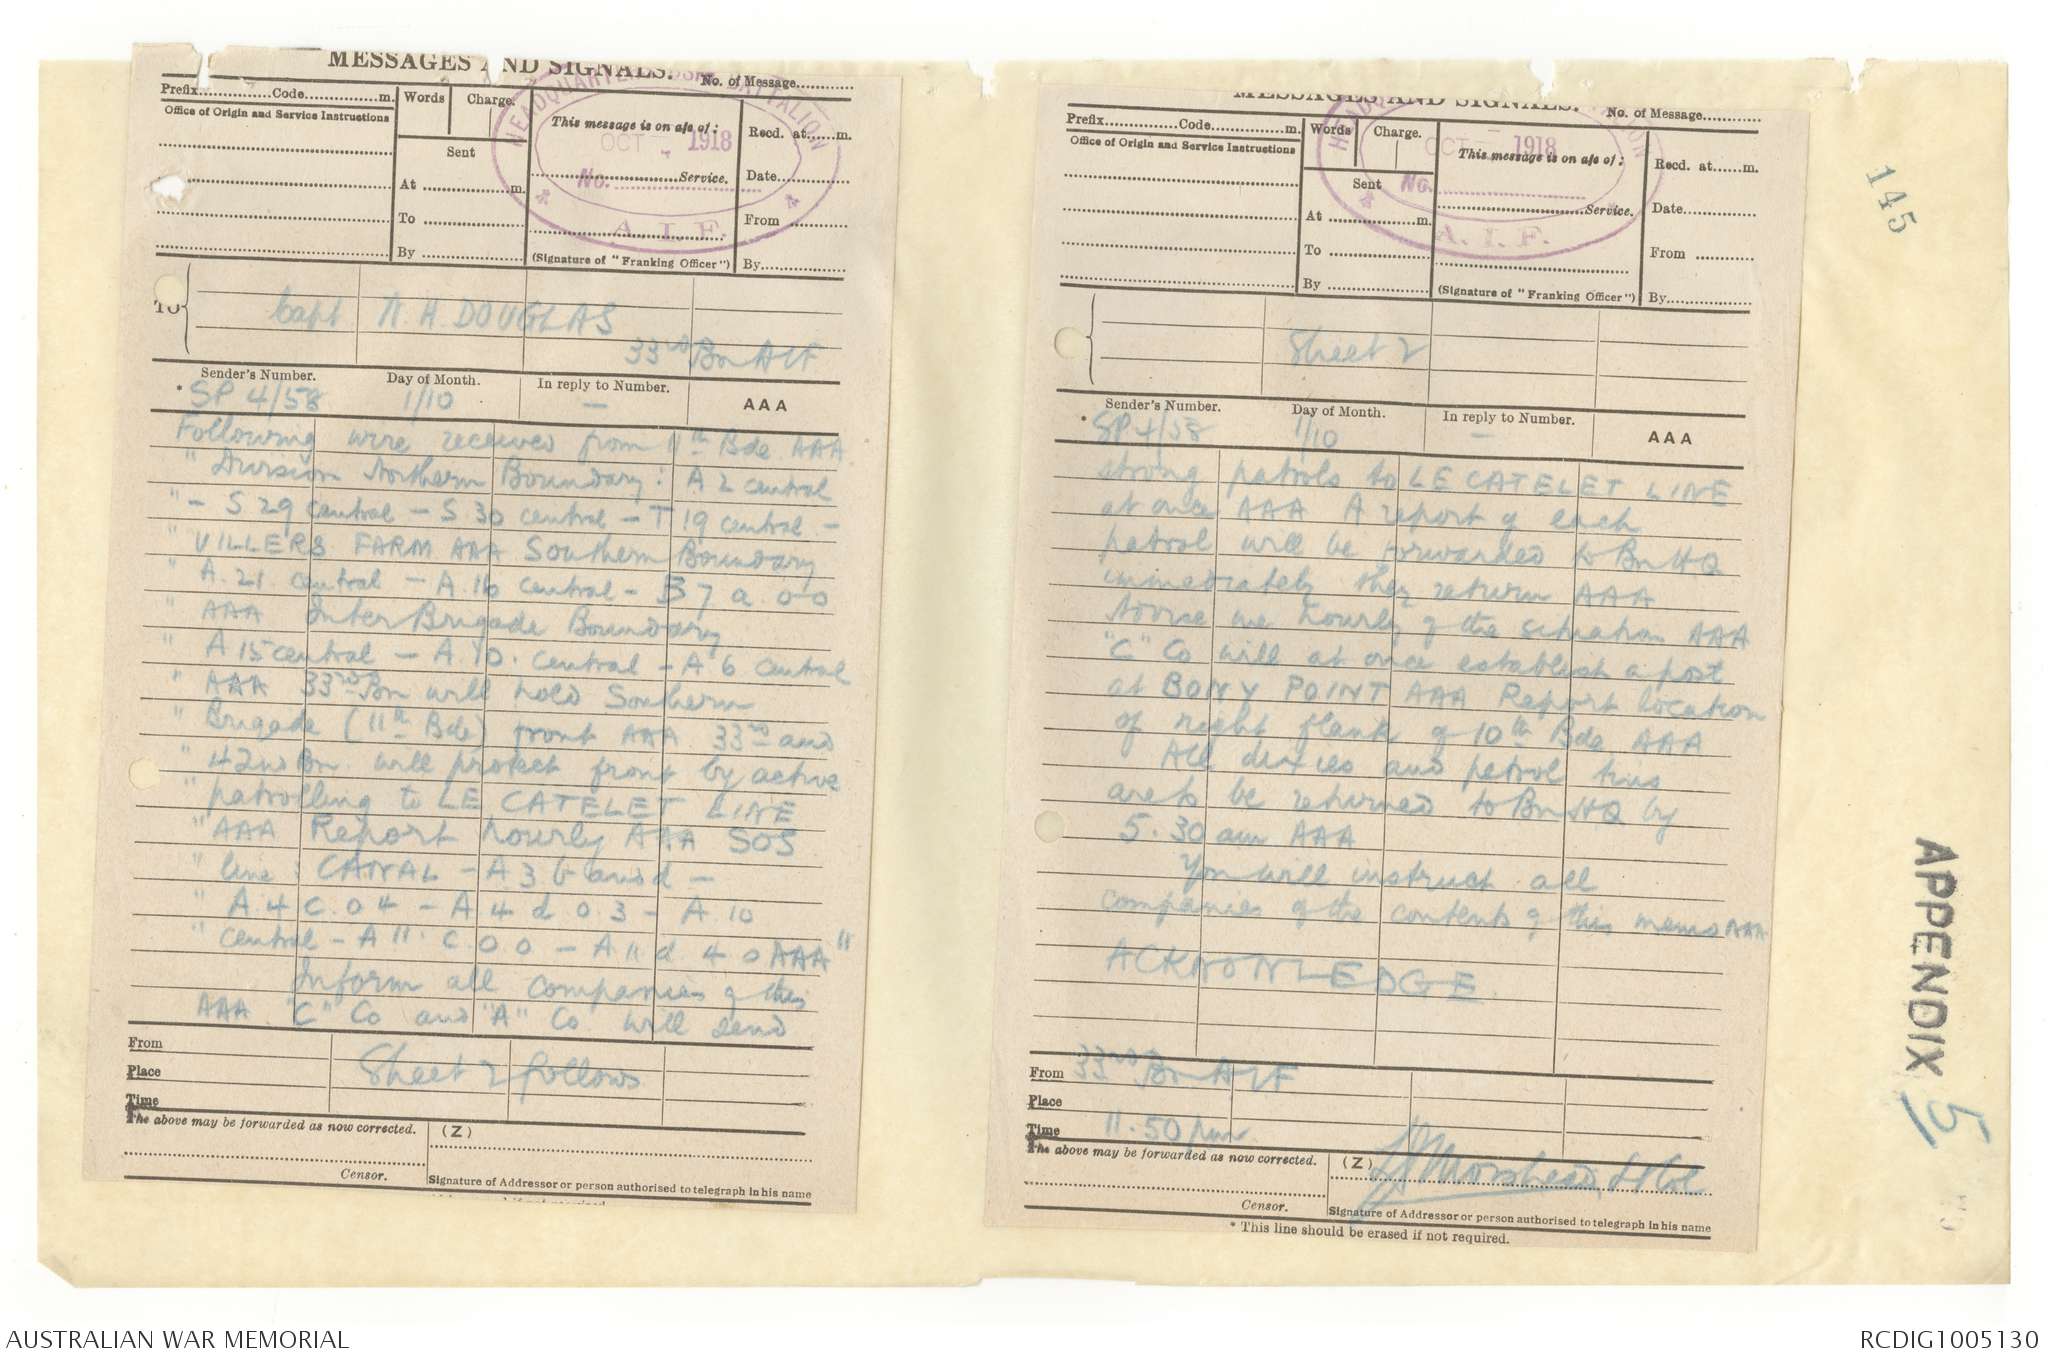 MESSAGES AND SIGNALS.
No. of Message
Prefix Code m.
Words Charge.
Office of Origin and Service Instructions
Sent
At m.
To
By
This message is on a/c of:
Service.
(Signature of "Franking Officer")
Recd. at m.
Date
From
By
HEADQUARTERS BATTALION
OCT 1918
No.
A. I. F.
TO
Capt. N. H. DOUGLAS
33rd Bn AIF
Sender's Number.
Day of Month.
In reply to Number.
AAA
* SP 4/58
1/10
—
Following wire received from 11th Bde AAA
" Division Northern Boundary: A 2 central
" – S 29 central – S.30 central – T 19 central –
" VILLERS FARM AAA Southern Boundary
" A.21. central – A.16 central – B 7 a. 0–0
" AAA Inter Brigade Boundary
" A 15 central – A.10. central – A 6 central
" AAA 33rd Bn will hold Southern
" Brigade (11th Bde) front AAA 33rd and
" 42nd Bn. will protect front by active
" patrolling to LE CATELET LINE
" AAA Report hourly AAA SOS
" line: CANAL – A 3 b and d –
" A.4 c. 0 4 – A.4 d 0.3 – A.10
" central – A 11. c.0 0 – A 11 d. 4 0 AAA"
Inform all companies of this
AAA "C" Co and "A" Co. will send
From
Place
Time
Sheet 2 follows
The above may be forwarded as now corrected.
(Z)
Censor.
Signature of Addressor or person authorised to telegraph in his name
MESSAGES AND SIGNALS.
No. of Message
Prefix Code m.
Words Charge.
Office of Origin and Service Instructions
Sent
At m.
To
By
This message is on a/c of:
Service.
(Signature of "Franking Officer")
Recd. at m.
Date
From
By
OCT 1918
No.
A. I. F.
Sheet 2
Sender's Number.
Day of Month.
In reply to Number.
AAA
* SP 4/58
1/10
—
strong patrols to LE CATELET LINE
at once AAA A report of each
patrol will be forwarded to Bn HQ
immediately they return AAA
Advise me hourly of the situation AAA
"C" Co will at once establish a post
at BONY POINT AAA Report location
of right flank of 10th Bde AAA
All dixies and petrol tins
are to be returned to Bn HQ by
5.30 am AAA
You will instruct all
companies of the contents of this memo AAA
ACKNOWLEDGE
From 33rd Bn AIF
Place
Time 11.50 pm
The above may be forwarded as now corrected.
(Z) Morshead, Lt Col
Censor.
Signature of Addressor or person authorised to telegraph in his name
* This line should be erased if not required.
145
APPENDIX 5
AUSTRALIAN WAR MEMORIAL
RCDIG1005130